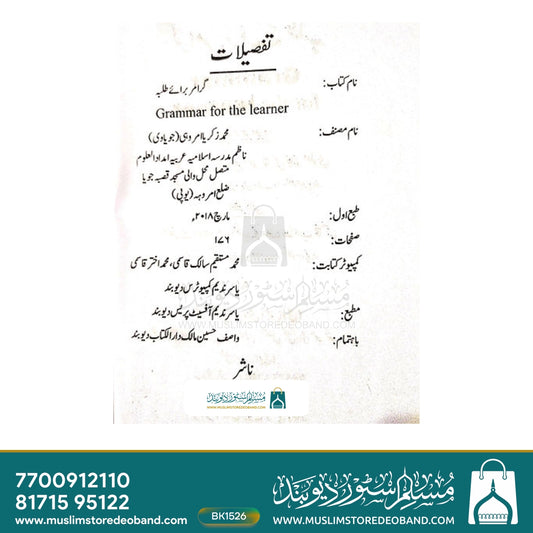 تفصیلات
نام کتاب: گرامر برائے طلبہ
Grammar for the learner
نام مصنف: محمد زکریا امروہی (جویادی)
ناظم مدرسہ اسلامیہ عربیہ امداد العلوم
متصل محل والی مسجد قصبہ جویا
ضلع امروہہ (یوپی)
طبع اول: مارچ ۲۰۱۸ء
صفحات: ۱۷۶
کمپیوٹر کتابت: محمد مستقیم سالک قاسمی، محمد اختر قاسمی
یاسر ندیم کمپیوٹرس دیوبند
مطبع: یاسر ندیم آفسیٹ پریس دیوبند
باہتمام: واصف حسین مالک دارالکتاب دیوبند
ناشر
مسلم سٹور دیوبند
WWW.MUSLIMSTOREDEOBAND.COM
مسلم سٹور دیوبند
WWW.MUSLIMSTOREDEOBAND.COM
7700912110
81715 95122
www.muslimstoredeoband.com
BK1526
مسلم سٹور دیوبند
WWW.MUSLIMSTOREDEOBAND.COM